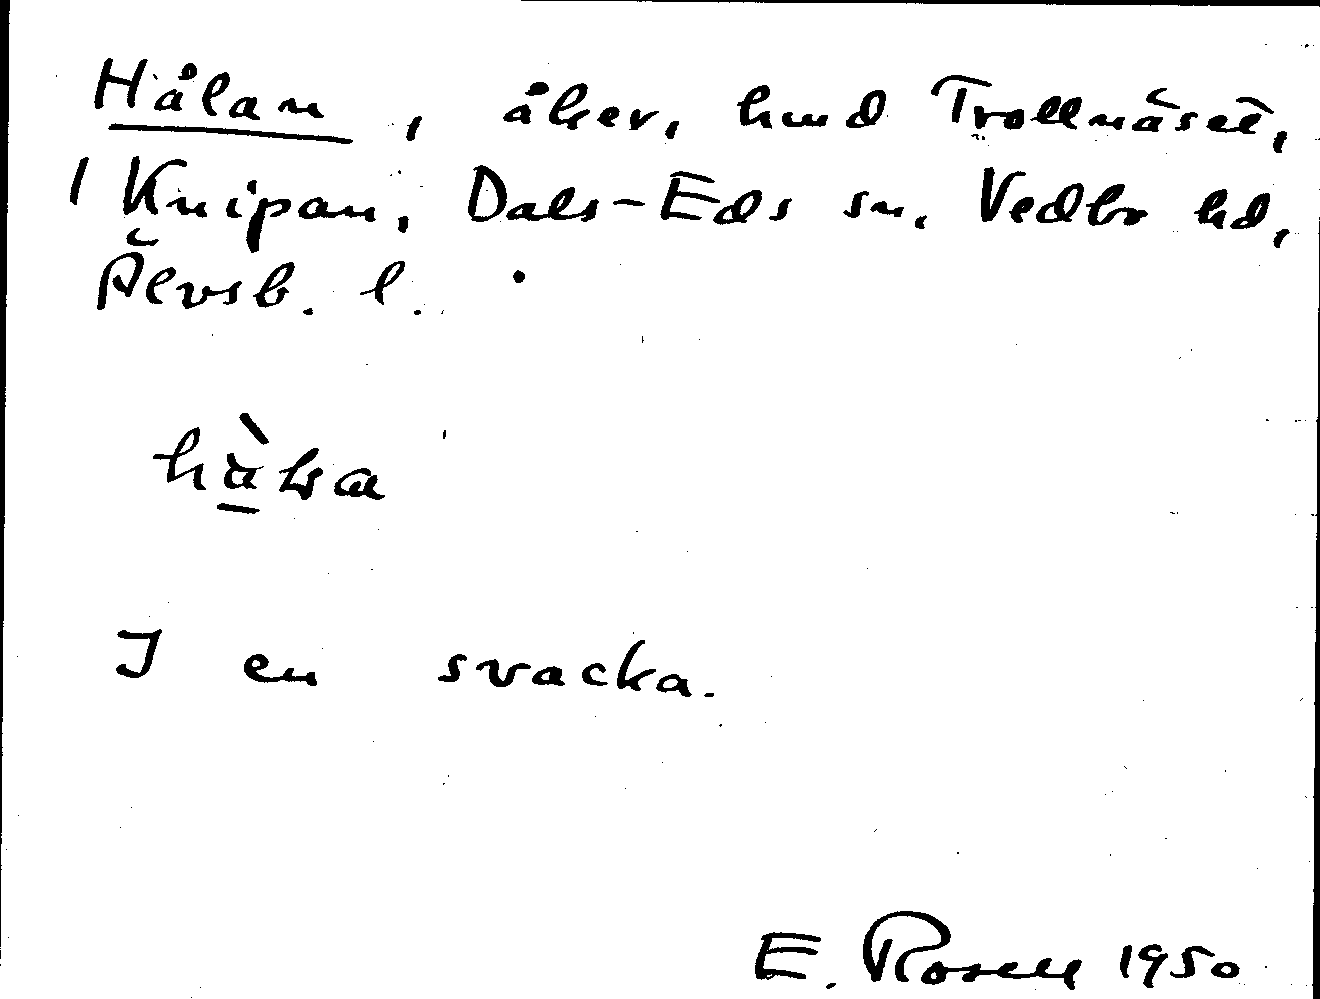 Hålan, åker, hmd Trollnäset,
1 Knipan, Dals-Eds sn, Vedbo hd,
Älvsb. l.
I en svacka.
E. Rosell 1950